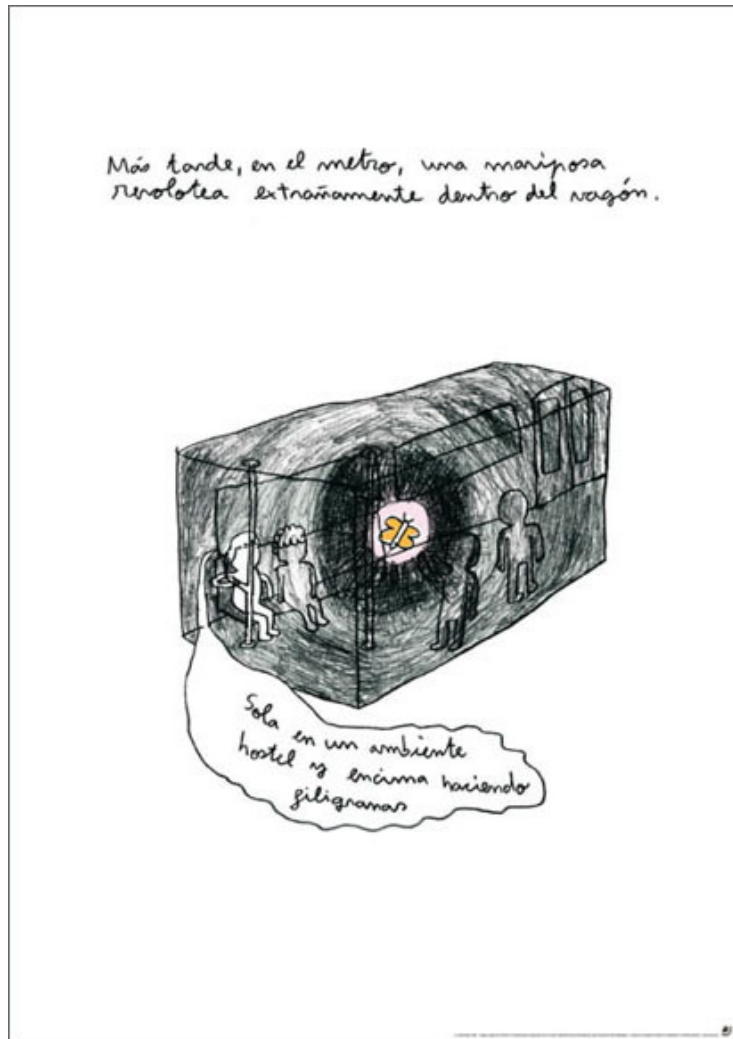 Más tarde, en el metro, una mariposa
revolotea extrañamente dentro del vagón.
Sola en un ambiente
hostel y encima haciendo
filigranas